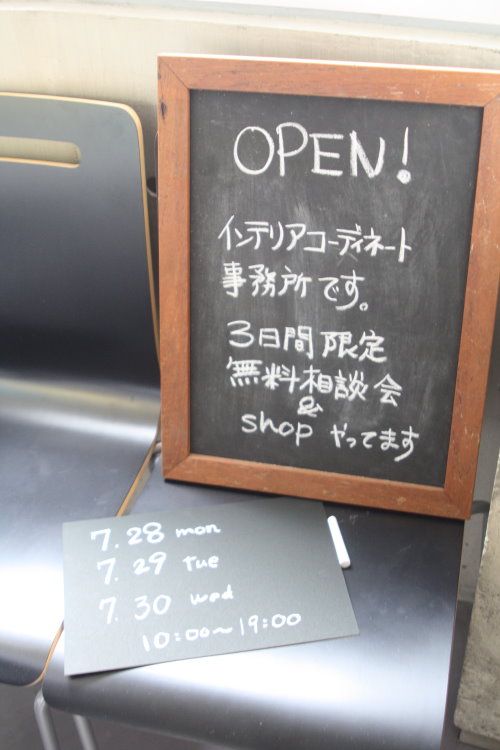 OPEN!
インテリアコーディネート
事務所です。
3日間限定
無料相談会
&
shop やってます
7.28 mon
7.29 Tue
7.30 wed
10:00〜19:00